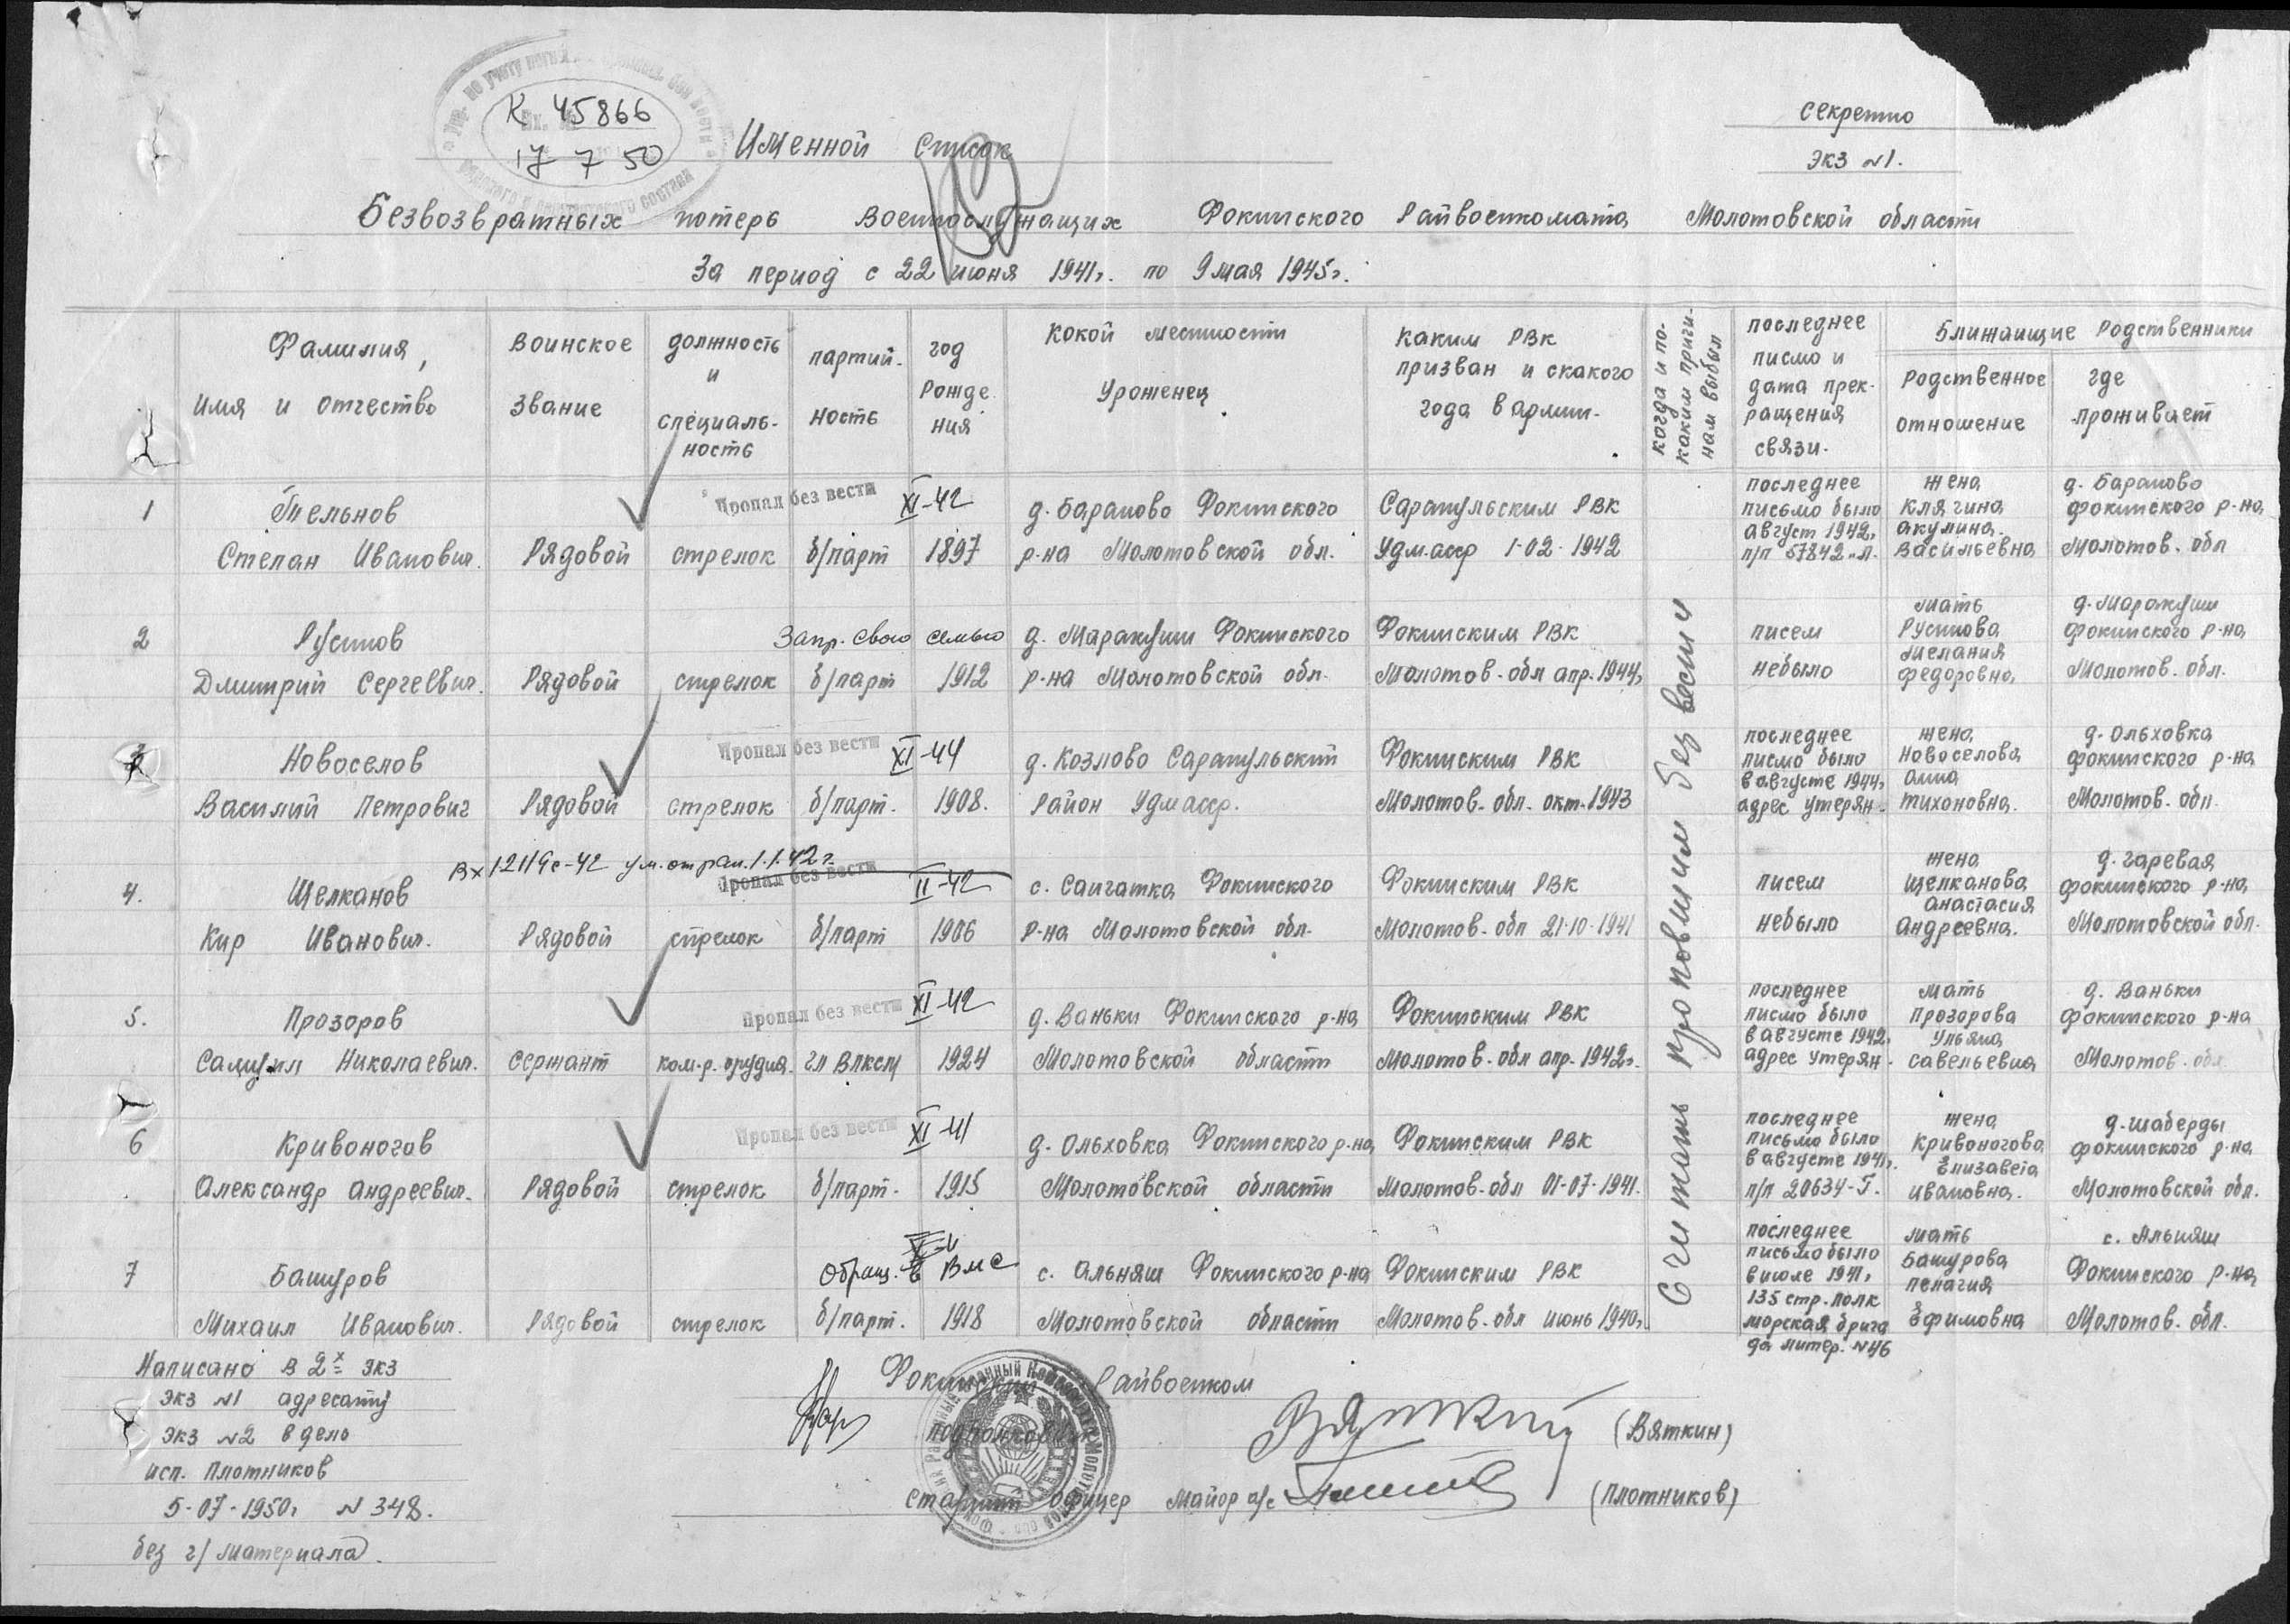 К 45866
17 7 50
Секретно
Экз №1.
Именной список
Безвозвратных потерь военнослужащих Фокинского Райвоенкомата Молотовской области
За период с 22 июня 1941г. по 9 мая 1945г.
Фамилия, имя и отчество
Воинское звание
должность и специаль-ность
партий-ность
год рожде-ния
Какой местности уроженец
Каким РВК призван и скакого года в армии.
когда и по-каким причи-нам выбыл
последнее писмо и дата прек-ращения связи.
Ближаищие Родственники
Родственное отношение
где проживает
Считать пропавшим без вести
1
Тельнов
Степан Иванович.
Рядовой
стрелок
Пропал без вести XI-42
б/парт
1897
д. Бараново Фокинского
р-на Молотовской обл.
Сарапульским РВК
Удм.асср 1-02-1942
последнее
письмо было
август 1942г
п/п 57842-л.
жена
Клягина
акулина
Васильевна
д. Бараново
фокинского р-на
Молотов. обл
2
Русинов
Дмитрий Сергеевич.
Рядовой
стрелок
Запр. свою семью
б/парт
1912
д. Маракуши Фокинского
р-на Молотовской обл.
Фокинским РВК
Молотов. обл апр. 1944г
писем
небыло
мать
Русинова
мелания
федоровна
д. Маракуши
фокинского р-на
Молотов. обл.
3
Новоселов
Василий Петрович
Рядовой
стрелок
Пропал без вести XI-44
б/парт.
1908.
д. Козлово Сарапульский
Район Удм.асср.
Фокинским РВК
Молотов. обл. окт. 1943
последнее
письмо было
в августе 1944г
адрес утерян.
жена
Новоселова
анна
тихоновна.
д. Ольховка
фокинского р-на
Молотов. обл.
Вх 12119с-42 ум. от ран 1.1.42 г.
4.
Щелканов
Кир Иванович.
Рядовой
стрелок
Пропал без вести II-42
б/парт
1906
с. Сайгатка Фокинского
р-на Молотовской обл.
Фокинским РВК
Молотов. обл 21-10-1941
писем
небыло
жена
щелканова
анастасия
андреевна.
д. гаревая
фокинского р-на
Молотовской обл.
5.
Прозоров
Самуил Николаевич.
Сержант
ком-р. орудия.
Пропал без вести XI-42
чл ВЛКСМ
1924
д. Ваньки Фокинского р-на
Молотовской области
Фокинским РВК
Молотов. обл апр. 1942г.
последнее
письмо было
в августе 1942г
адрес утерян.
мать
прозорова
Ульяна
савельевна
д. Ваньки
Фокинского р-на
Молотов. обл.
6
Кривоногов
Александр андреевич.
Рядовой
стрелок
Пропал без вести XI-41
б/парт.
1915
д. Ольховка Фокинского р-на
Молотовской области
Фокинским РВК
Молотов. обл 01-07-1941.
последнее
письмо было
в августе 1941г.
п/п 20634-Т.
жена
Кривоногова
Елизавета
ивановна.
д. шаберды
фокинского р-на
Молотовской обл.
7
Башуров
Михаил Иванович.
Рядовой
стрелок
Обращ. в ВМС
б/парт.
1918
с. Альняш Фокинского р-на
Молотовской области
Фокинским РВК
Молотов. обл июнь 1940г.
последнее
письмо было
в июле 1941г
135 стр. полк
морская брига
да литер. №46
мать
Башурова
пелагия
Ефимовна
с. Альняш
Фокинского р-на
Молотов. обл.
Написано в 2х экз
экз №1 адресату
экз №2 в дело
исп. Плотников
5-07-1950г №348.
без ч/материала.
Фокинский Райвоенком
подполковник
(Вяткин)
старший офицер майор а/с
(Плотников)